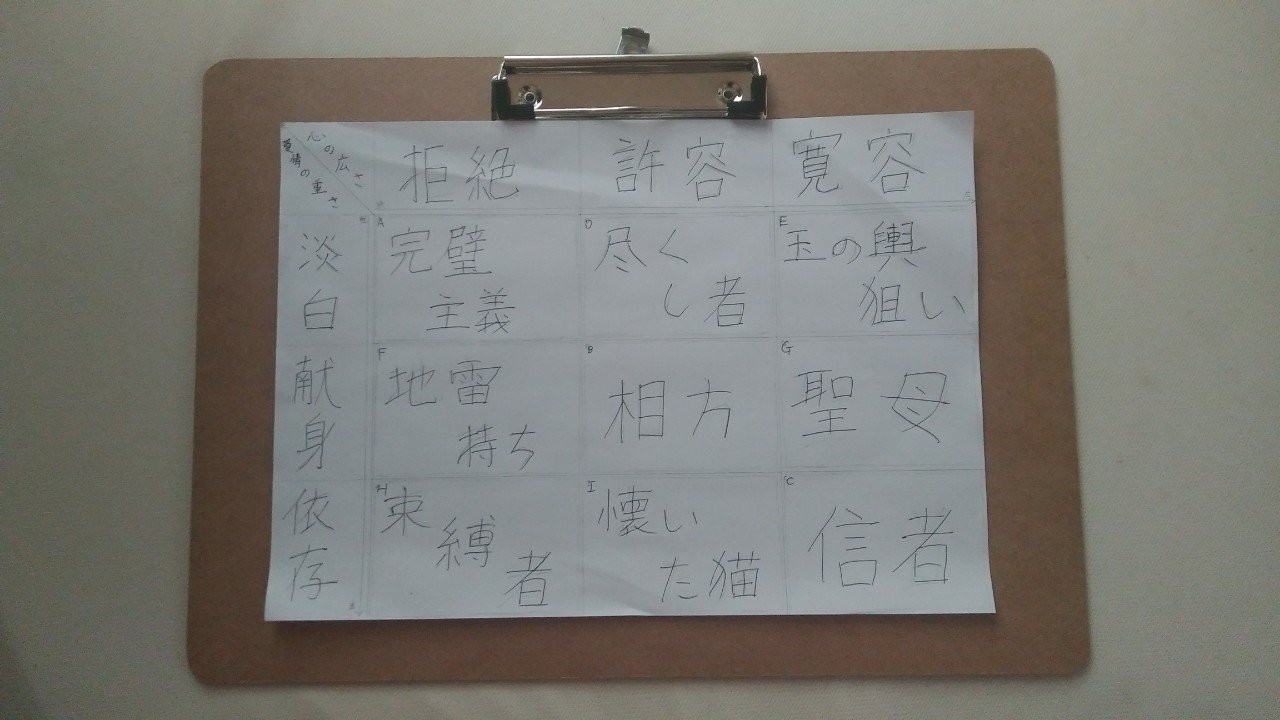 心の広さ
愛情の重さ
拒絶
許容
寛容
淡白
A
完璧
主義
D
尽く
し者
E
玉の輿
狙い
献身
F
地雷
持ち
B
相方
G
聖母
依存
H
束縛者
I
懐い
た猫
C
信者